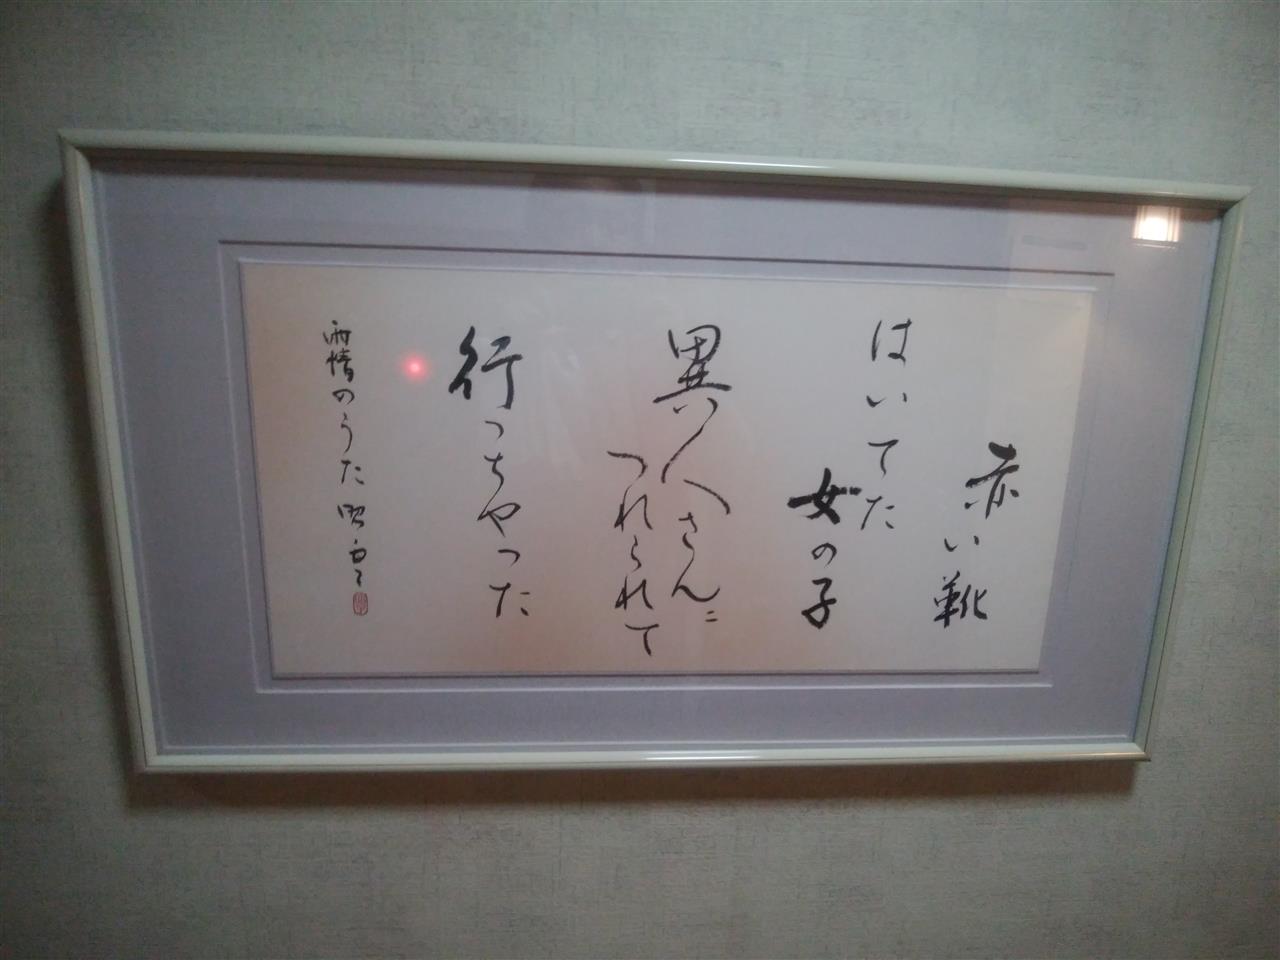 赤い靴
はいてた
女の子
異人さんに
つれられて
行っちゃった
雨情のうた